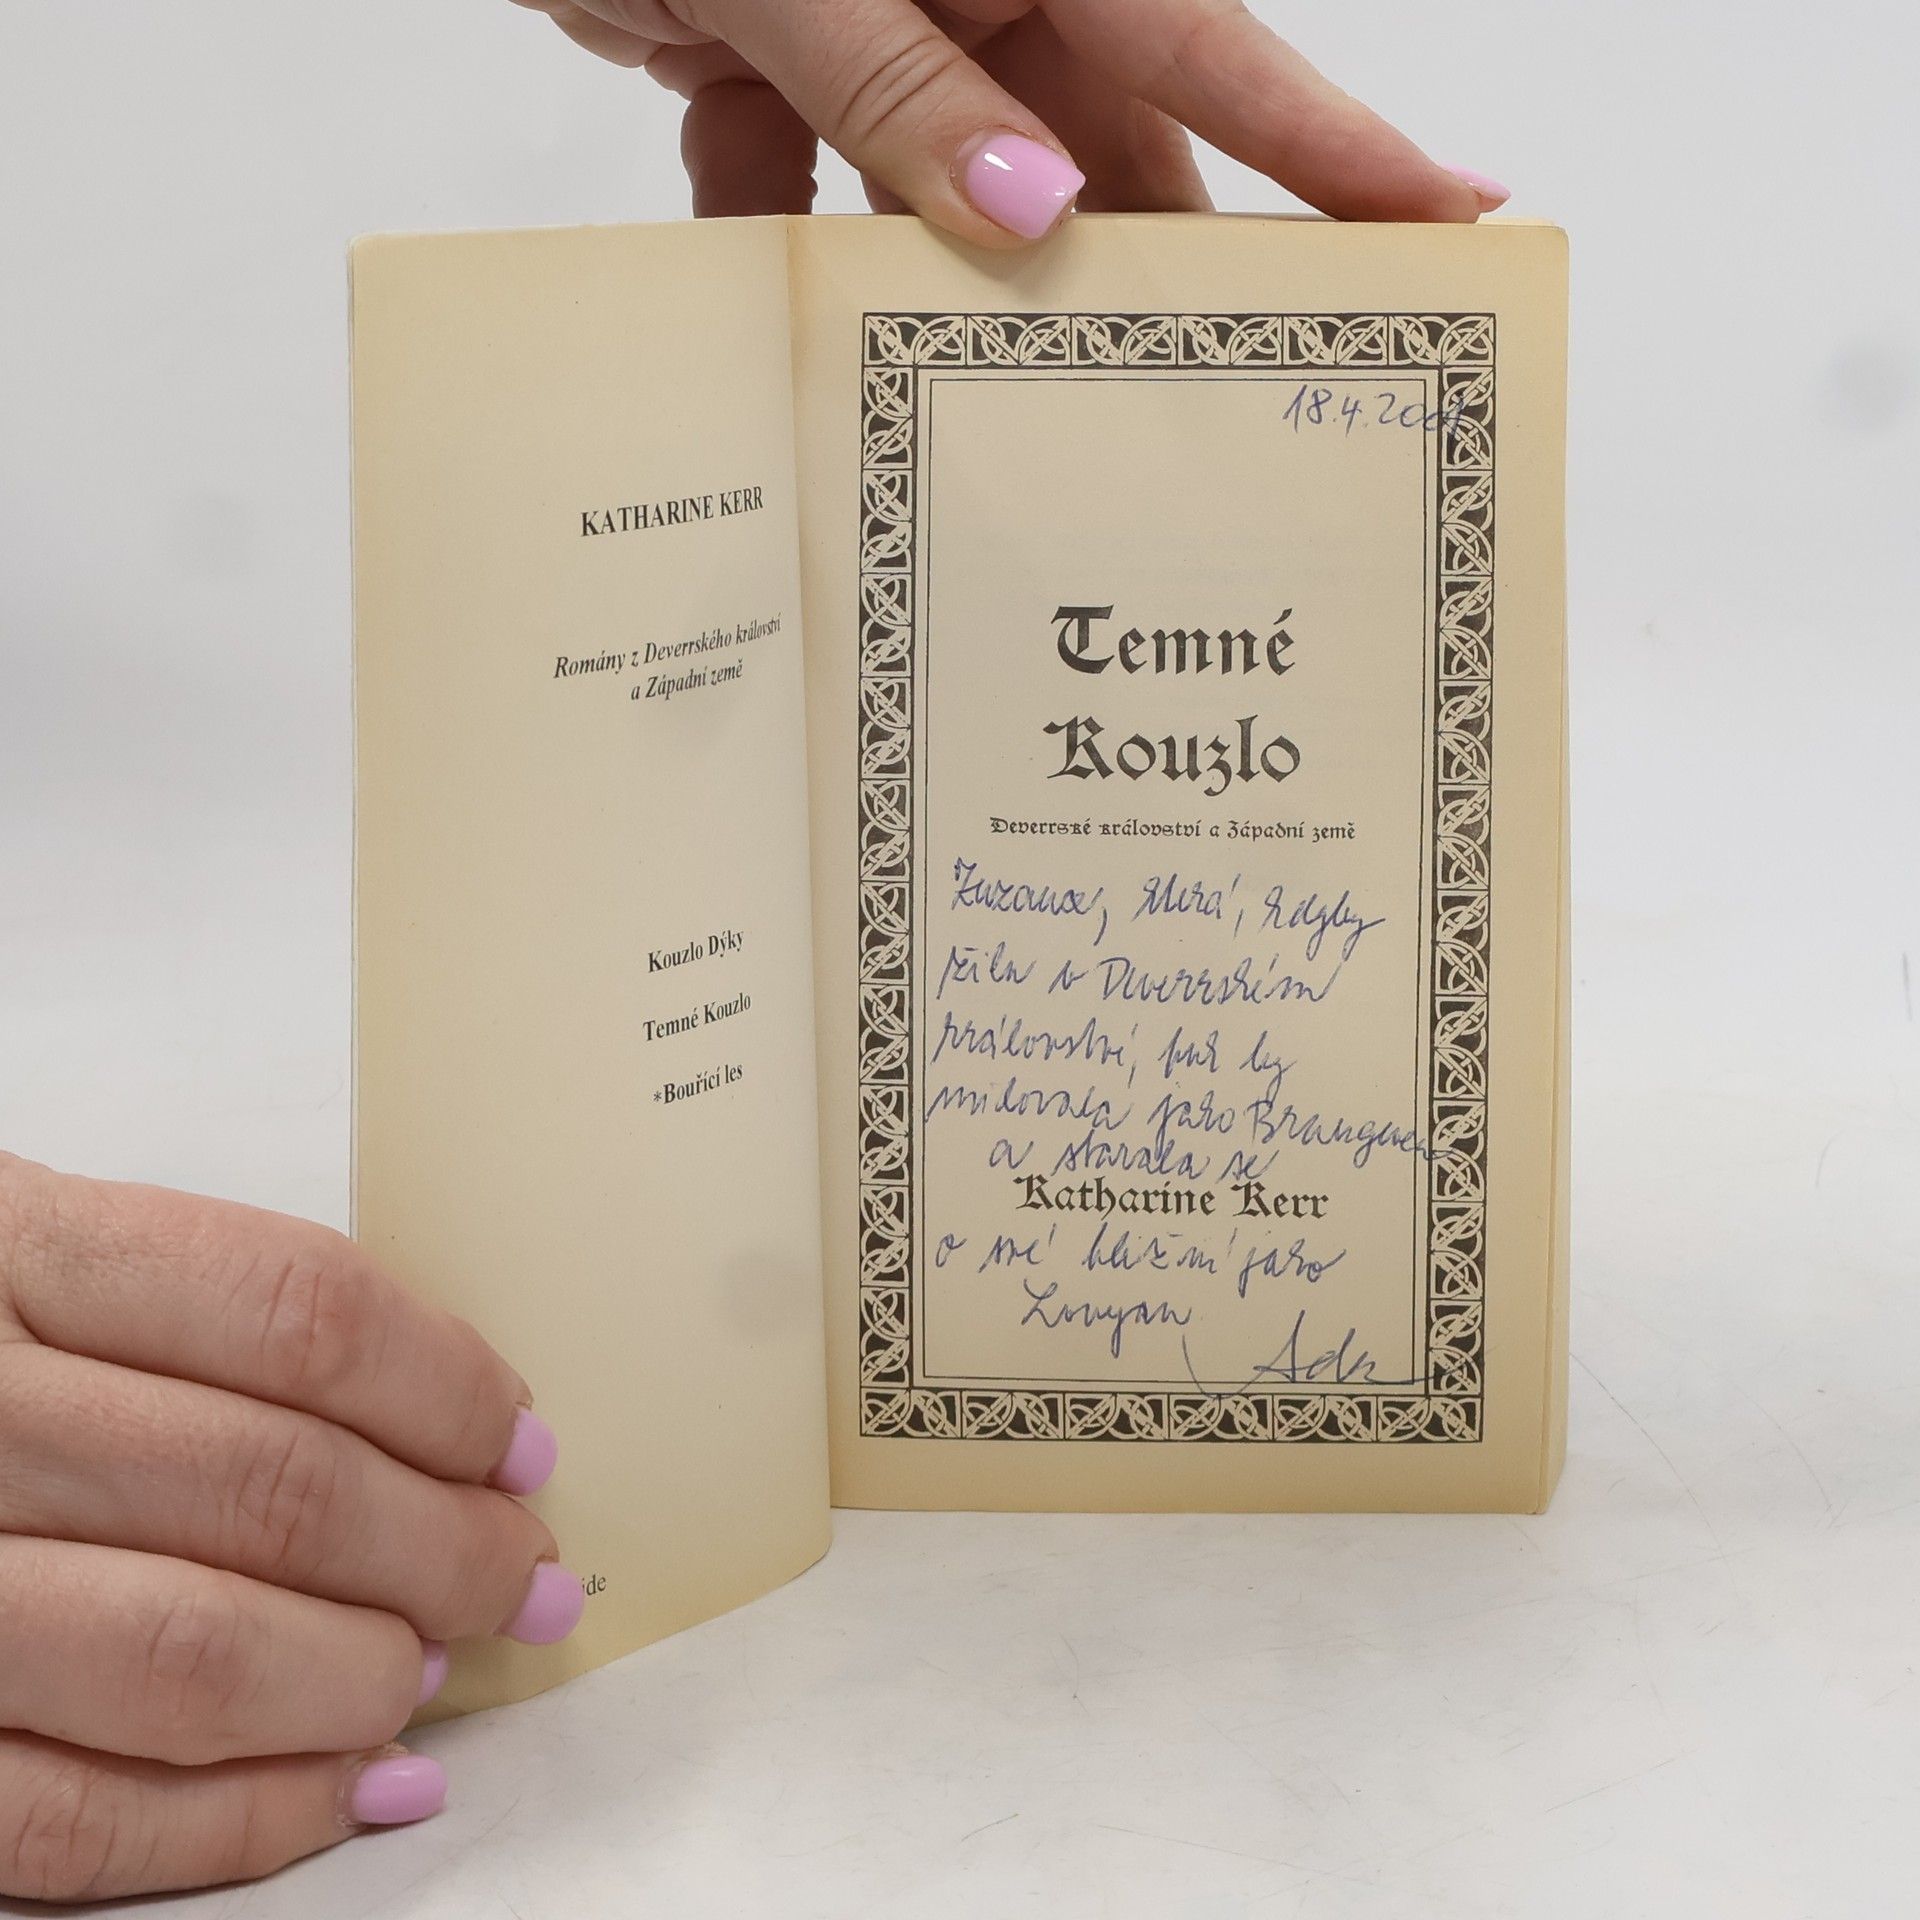 KATHARINE KERR
Romány z Deverrského království
a Západní země
Kouzlo Dýky
Temné Kouzlo
*Bouřící les
ide
18.4.2001
Temné
Kouzlo
Deverrské království a Západní země
Zuzance, která, kdyby
žila v Deverrském
království, tak by
milovala jako Brangwen
a starala se
Katharine Kerr
o své bližní jako
Lovyan